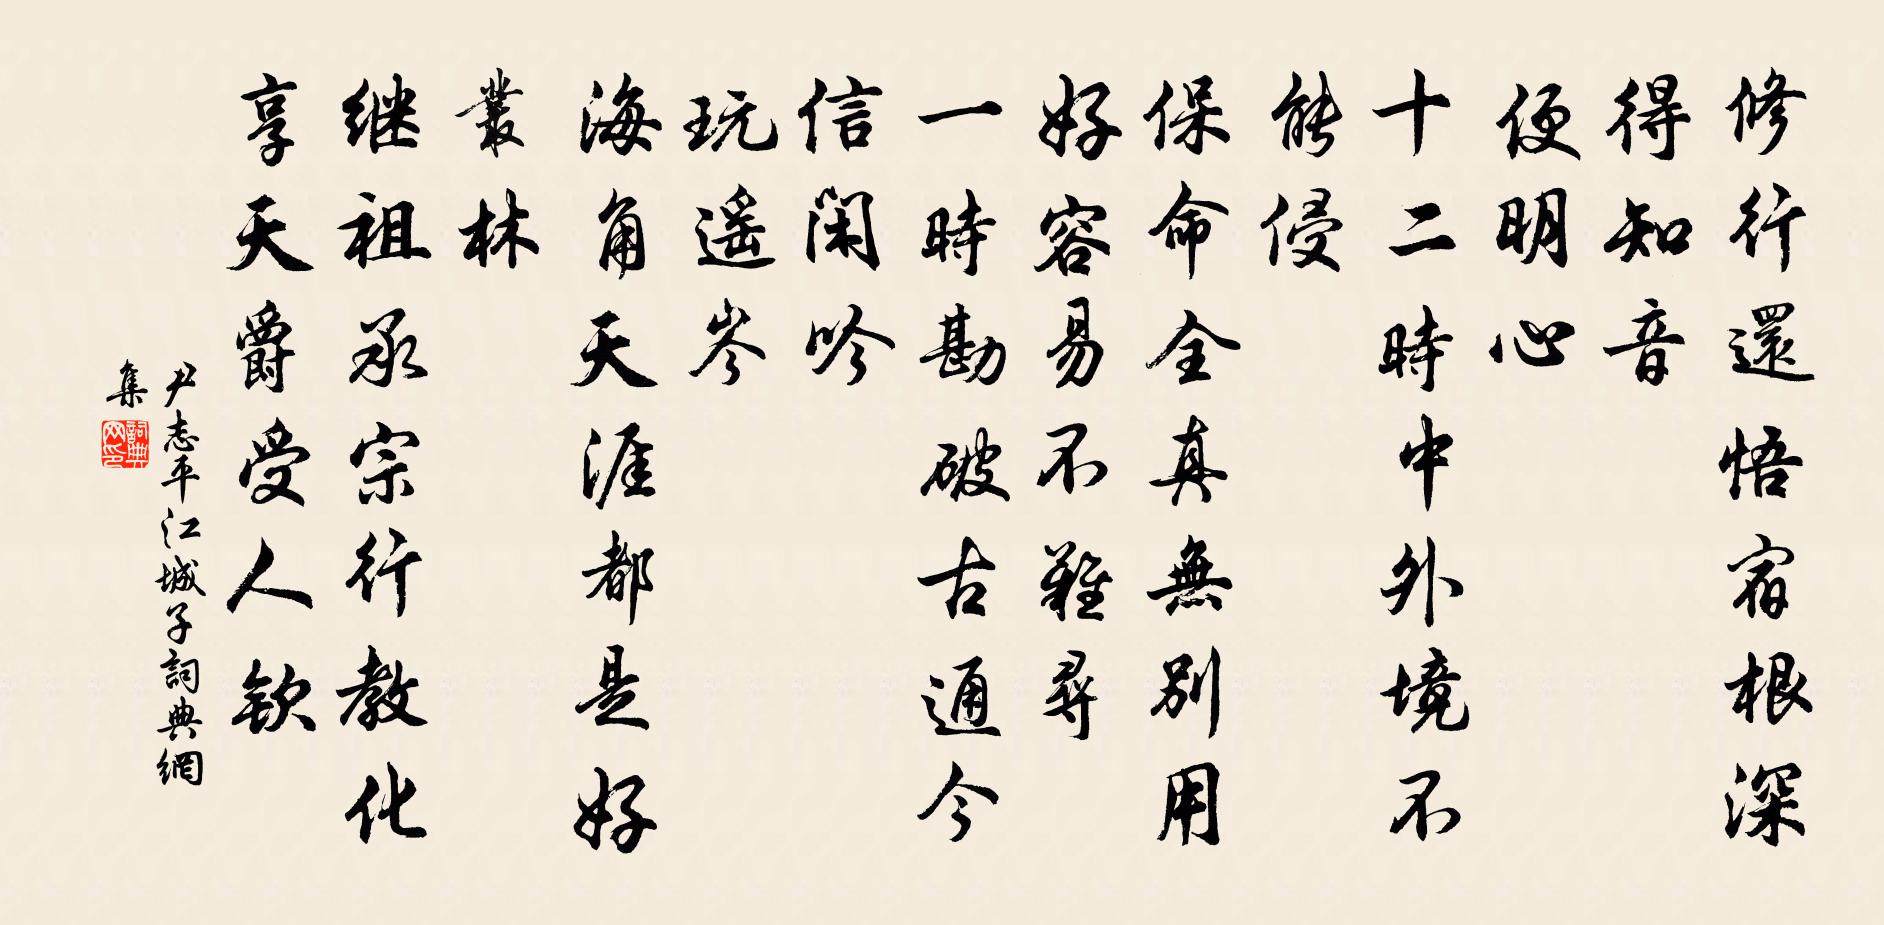 修行還悟宿根深
得知音
便明心
十二時中外境不
能侵
保命全真無別用
好容易不難尋
一時勘破古通今
信閑吟
玩遥岑
海角天涯都是好
叢林
继祖承宗行教化
享天爵受人欽
尹志平江城子詞典網
集
詞典
网印